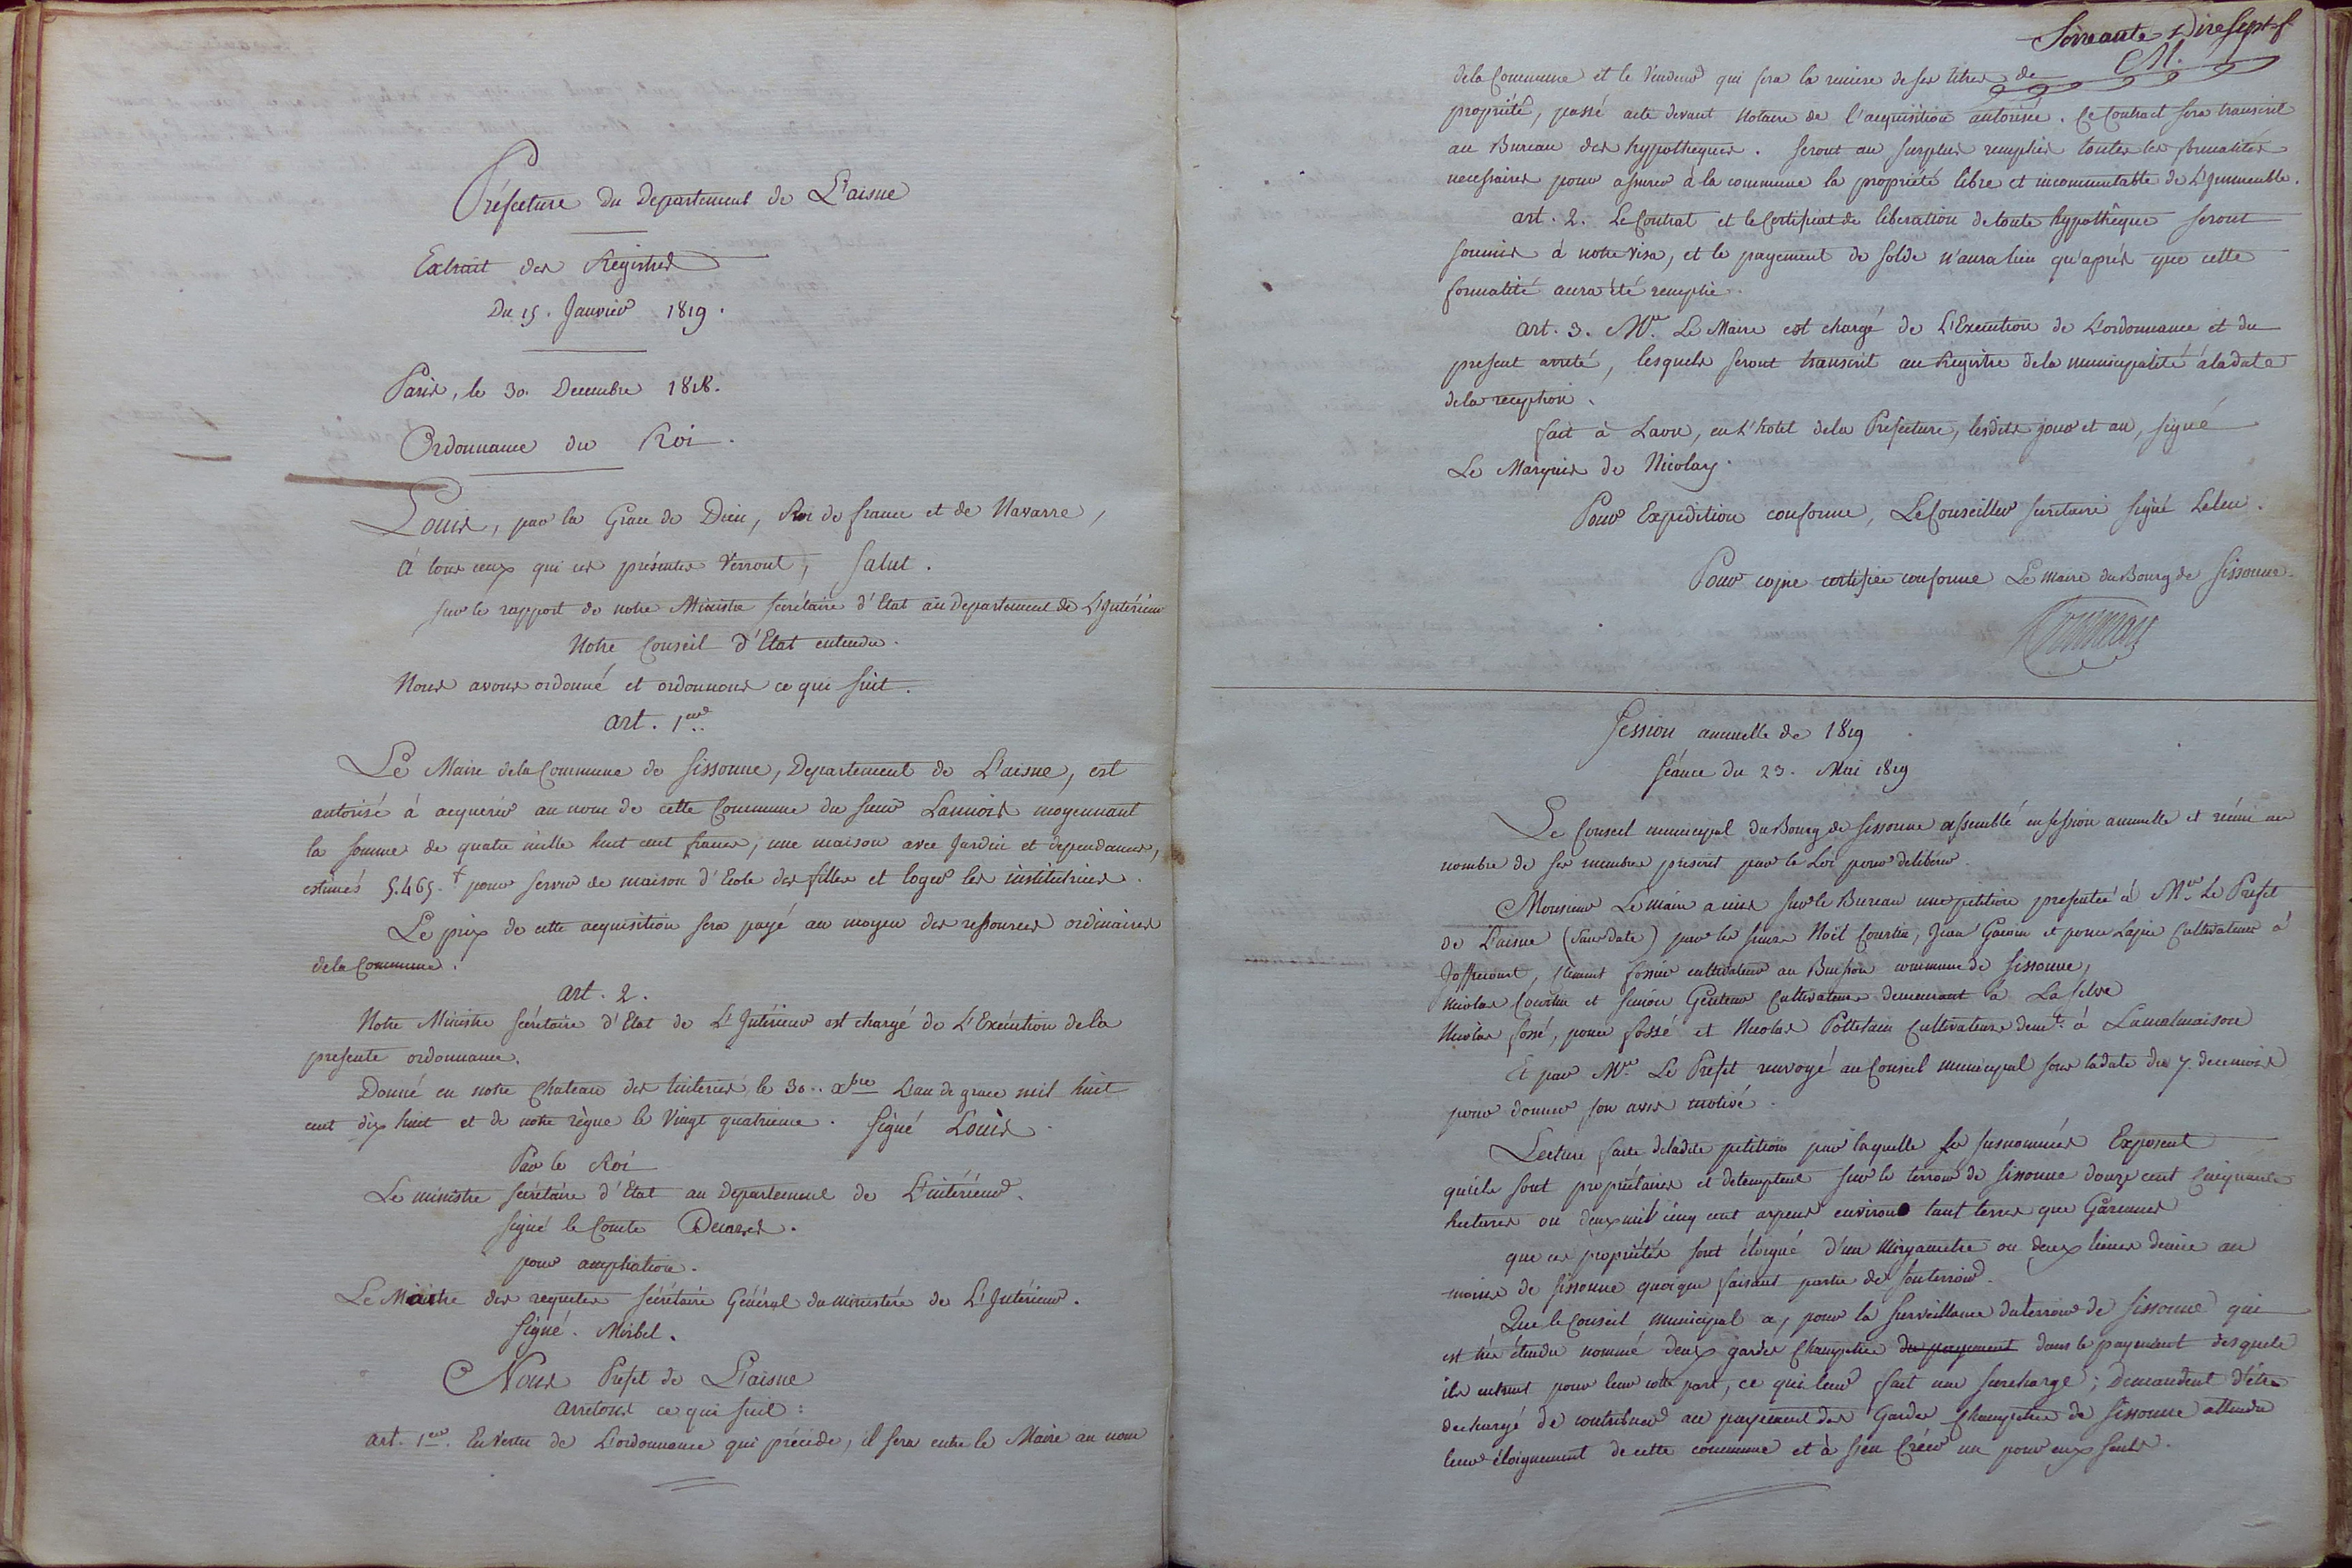 Préfecture du Departement de L'aisne
Extrait des Registres
Du 15. Janvier 1819.
Paris, le 30. Decembre 1818.
Ordonnance du Roi.
Louis, par la Grace de Dieu, Roi de france et de Navarre,
à tous ceux qui ces présentes verront, Salut.
Sur le rapport de notre Ministre secrétaire d'Etat au Departement de L'Intérieur
Notre Conseil d'Etat entendu.
Nous avons ordonné et ordonnons ce qui suit.
art. 1er.
Le Maire dela Commune de Sissonne, Departement de L'aisne, est
autorisé à acquerir au nom de cette Commune du sieur Lannois moyennant
la somme de quatre mille huit cent francs, une maison avec Jardin et dependances,
estimés 5.465.f pour servir de maison d'Ecole des filles et loger les institutrices.
Le prix de cette acquisition sera payé au moyen des ressources ordinaires
dela Commune.
art. 2.
Notre Ministre secrétaire d'Etat de L'Intérieur est chargé de L'Exécution dela
presente ordonnance.
Donné en notre Chateau des tuileries le 30.. xbre L'an de grace mil huit
cent dix huit et de notre règne le Vingt quatrieme. Signé Louis.
Par le Roi
Le ministre secrétaire d'Etat au departement de L'intérieur.
signé le Comte Decazes.
pour ampliation.
Le Maitre des requetes secrétaire Général du ministère de L'Intérieur.
Signé. Mirbel.
Nous Prefet de L'aisne
arretons ce qui suit :
art. 1er. En vertu de L'ordonnance qui précède, il sera entre le Maire au nom
Soixante Dix Sept f
M.
dela Commune et le Vendeur qui fera la remise de ses titres de
propriété, passé acte devant Notaire de l'acquisition autorisée. Ce Contract sera transcrit
au Bureau des hypotheques. Seront au surplus remplies toutes les formalités
necessaires pour assurer à la commune la propriété libre et incommutable de L'Immeuble.
art. 2. Le Contrat et le Certificat de liberation de toute hypothêque seront
soumis à notre visa, et le payement de Solde n'aura lieu qu'après que cette
formalité aura été remplie.
art. 3. Mr. Le Maire est chargé de L'Execution de L'ordonnance et du
present arreté, lesquels seront transcrit au Registre dela municipalité à la date
dela reception.
fait à Laon, en L'hotel dela Prefecture, lesdits jour et an, signé
Le Marquis de Nicolay.
Pour Expedition conforme, Le Conseiller Secretaire signé Leleu.
Pour copie certifiée conforme Le maire du Bourg de Sissonne.
Session annuelle de 1819
Séance du 23. Mai 1819
Le Conseil municipal du Bourg de Sissonne assemblé en session annuelle et réuni au
nombre de ses membres prescrit par la Loi pour deliberer.
Monsieur Le maire a mis sur le Bureau une petition presentée à Mr. Le Prefet
de L'aisne (Sans Date) par les sieurs Noël Courtin, Jean Garein et ponce Lajoie Cultivateurs à
Joffrecourt, fossier cultivateur au Buisson commune de Sissonne,
Nicolas Courtin et Simon Cultivateurs demeurant à La Selve
Nicolas fossé, ponce fossé et Nicolas Pottelain Cultivateurs demt. à Lamalmaison
Et par Mr. Le Prefet renvoyé au Conseil municipal sous la date du 7. decembre
pour donner son avis motivé.
Lecture faite deladite petition par laquelle les susnommés Exposent
qu'ils sont propriétaires et detempteurs sur le terroir de Sissonne douze cent Cinquante
hectares ou deux mil cinq cent arpens environ tant terres que Garennes
que ces propriétés sont éloigné d'un Miryametre ou deux lieues demie au
moins de Sissonne quoique faisant partie de son terroir.
Que le Conseil municipal a, pour la surveillance du terroir de Sissonne qui
est très étendu nommé deux gardes Champetres du payement dans le payement desquels
ils entrent pour leur côte part, ce qui leur fait une surcharge ; Demandent d'être
dechargé de contribuer au payement des Gardes Champetres de Sissonne attendu
leur éloignement de cette commune et à s'en Créer un pour eux seuls.